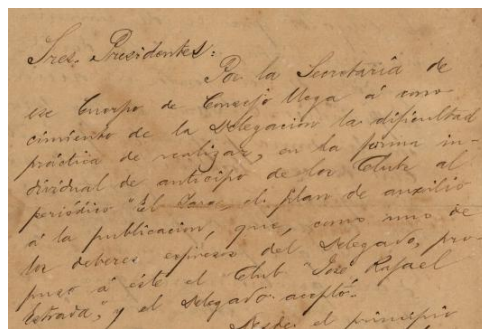 Sres. Presidentes:
Por la Secretaría de
ese Cuerpo de Consejo llega á cono
cimiento de la Delegacion la dificultad
práctica de realizar, en la forma in-
dividual de anticipo de los Clubs al
periódico "El Porvenir", el plan de auxilio
á la publicacion, que, como uno de
los deberes expresos del Delegado, pro-
puso á éste el Club "José Rafael
Estrada", y el Delegado aceptó.
Desde el principio